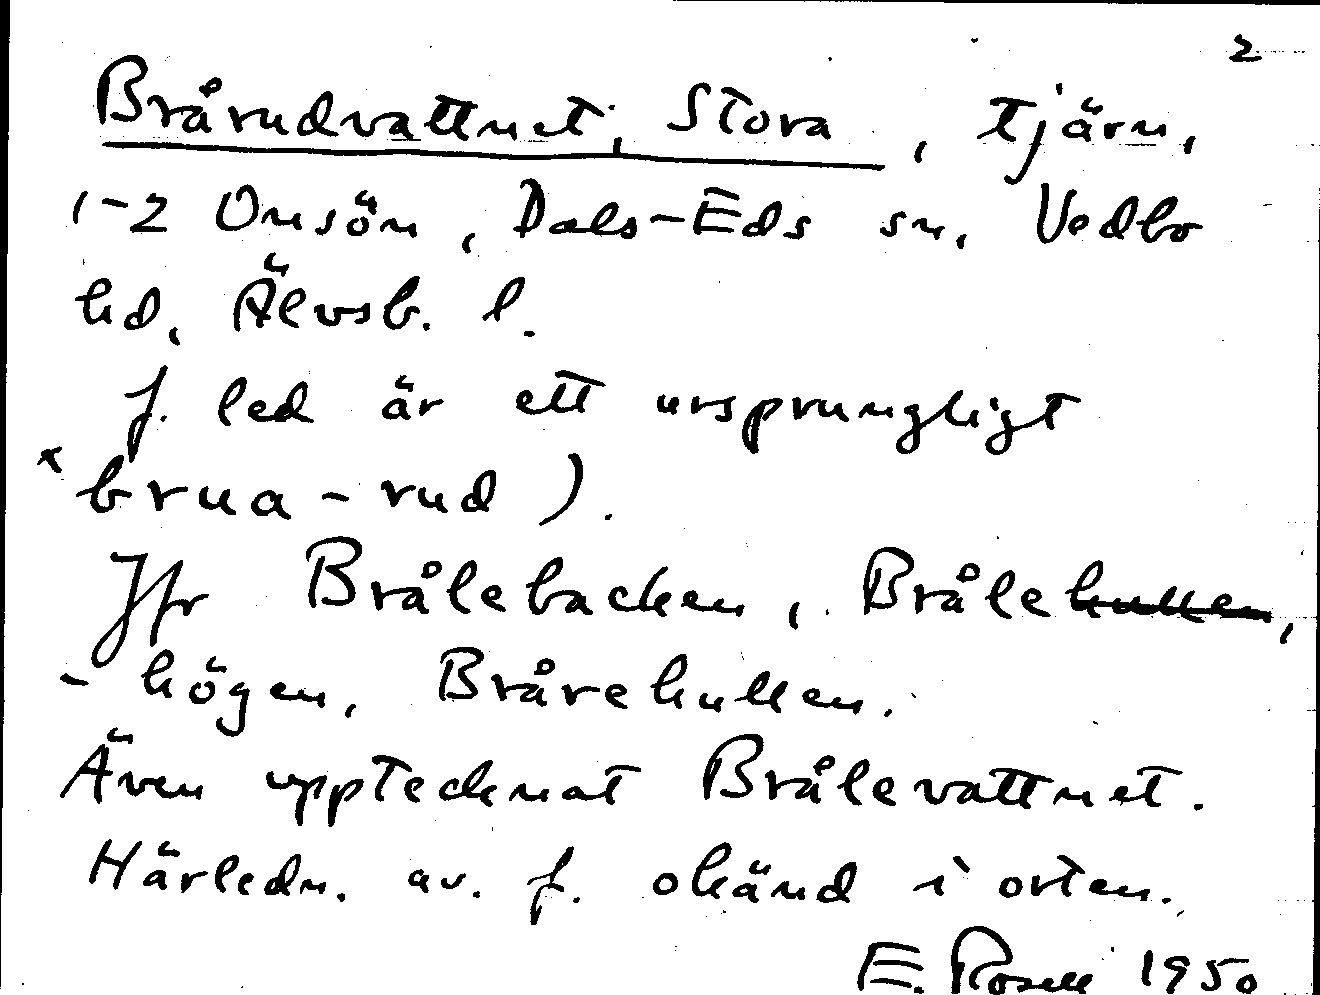 2
Brårudvattnet, Stora, tjärn,
1-2 Onsön, Dals-Eds sn, Vedbo
hd, Älvsb. l.
f. led är ett ursprungligt
*brua-rud).
Jfr Brålebacken, Brålekullen,
-högen, Brårekullen.
Även upptecknat Brålevattnet.
Härledn. av f. okänd i orten.
E. Rosell 1950